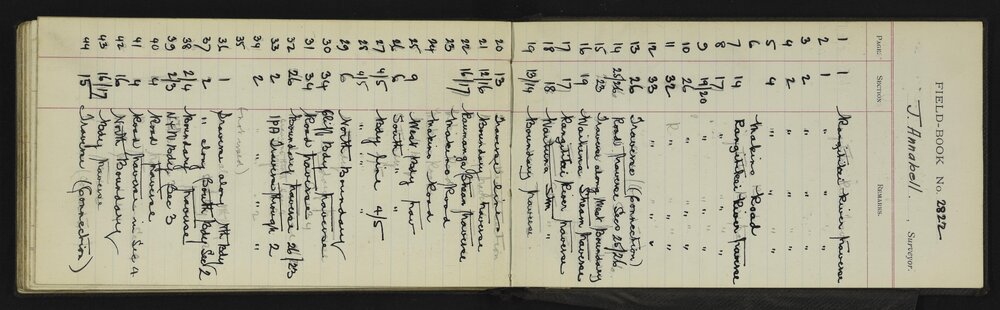 FIELD-BOOK No. 2822
J. Annabell Surveyor.
PAGE. SECTION. REMARKS.
1 1 Rangitikei River Traverse
2 1 " " "
3 2 " " "
4 2 " " "
5 4 " " "
6 Makino Road
7 14 Rangitikei River Traverse
8 17 " " "
9 19/20 " " "
10 26 " " "
11 32 " "
12 33 " "
13 26 Traverse (Connection)
14 25/26 Road Traverse Secs 25/26
15 23 Traverse along West Boundary
16 19 Waituna Stream Traverse
17 17 Rangitikei River Traverse
18 18 Waituna Stm
19 13/14 Boundary Traverse
20 13 Traverse line
21 12/16 Boundary Traverse
22 16/17 Stream Traverse
23 Makino Road
24 Makino Road
25 9 West Bdy Trav
26 6 South "
27 4/5 Bdy Line 4/5
28 4/5 " "
29 6 North Boundary
30 34 Bdy Traverse
31 34 Road Traverse
32 26 Boundary Traverse 26/25
33 2 Traverse through 2
34 2 " " "
35
36 1 Traverse along Nth Bdy
37 2 " along South Bdy Sec 2
38 2/4 Boundary Traverse
39 2/3 Bdy Sec 3
40 4 Road Traverse
41 4 Road Traverse in Sec 4
42 16 North Boundary
43 16/17 Bdy Traverse
44 15 Traverse (Connection)